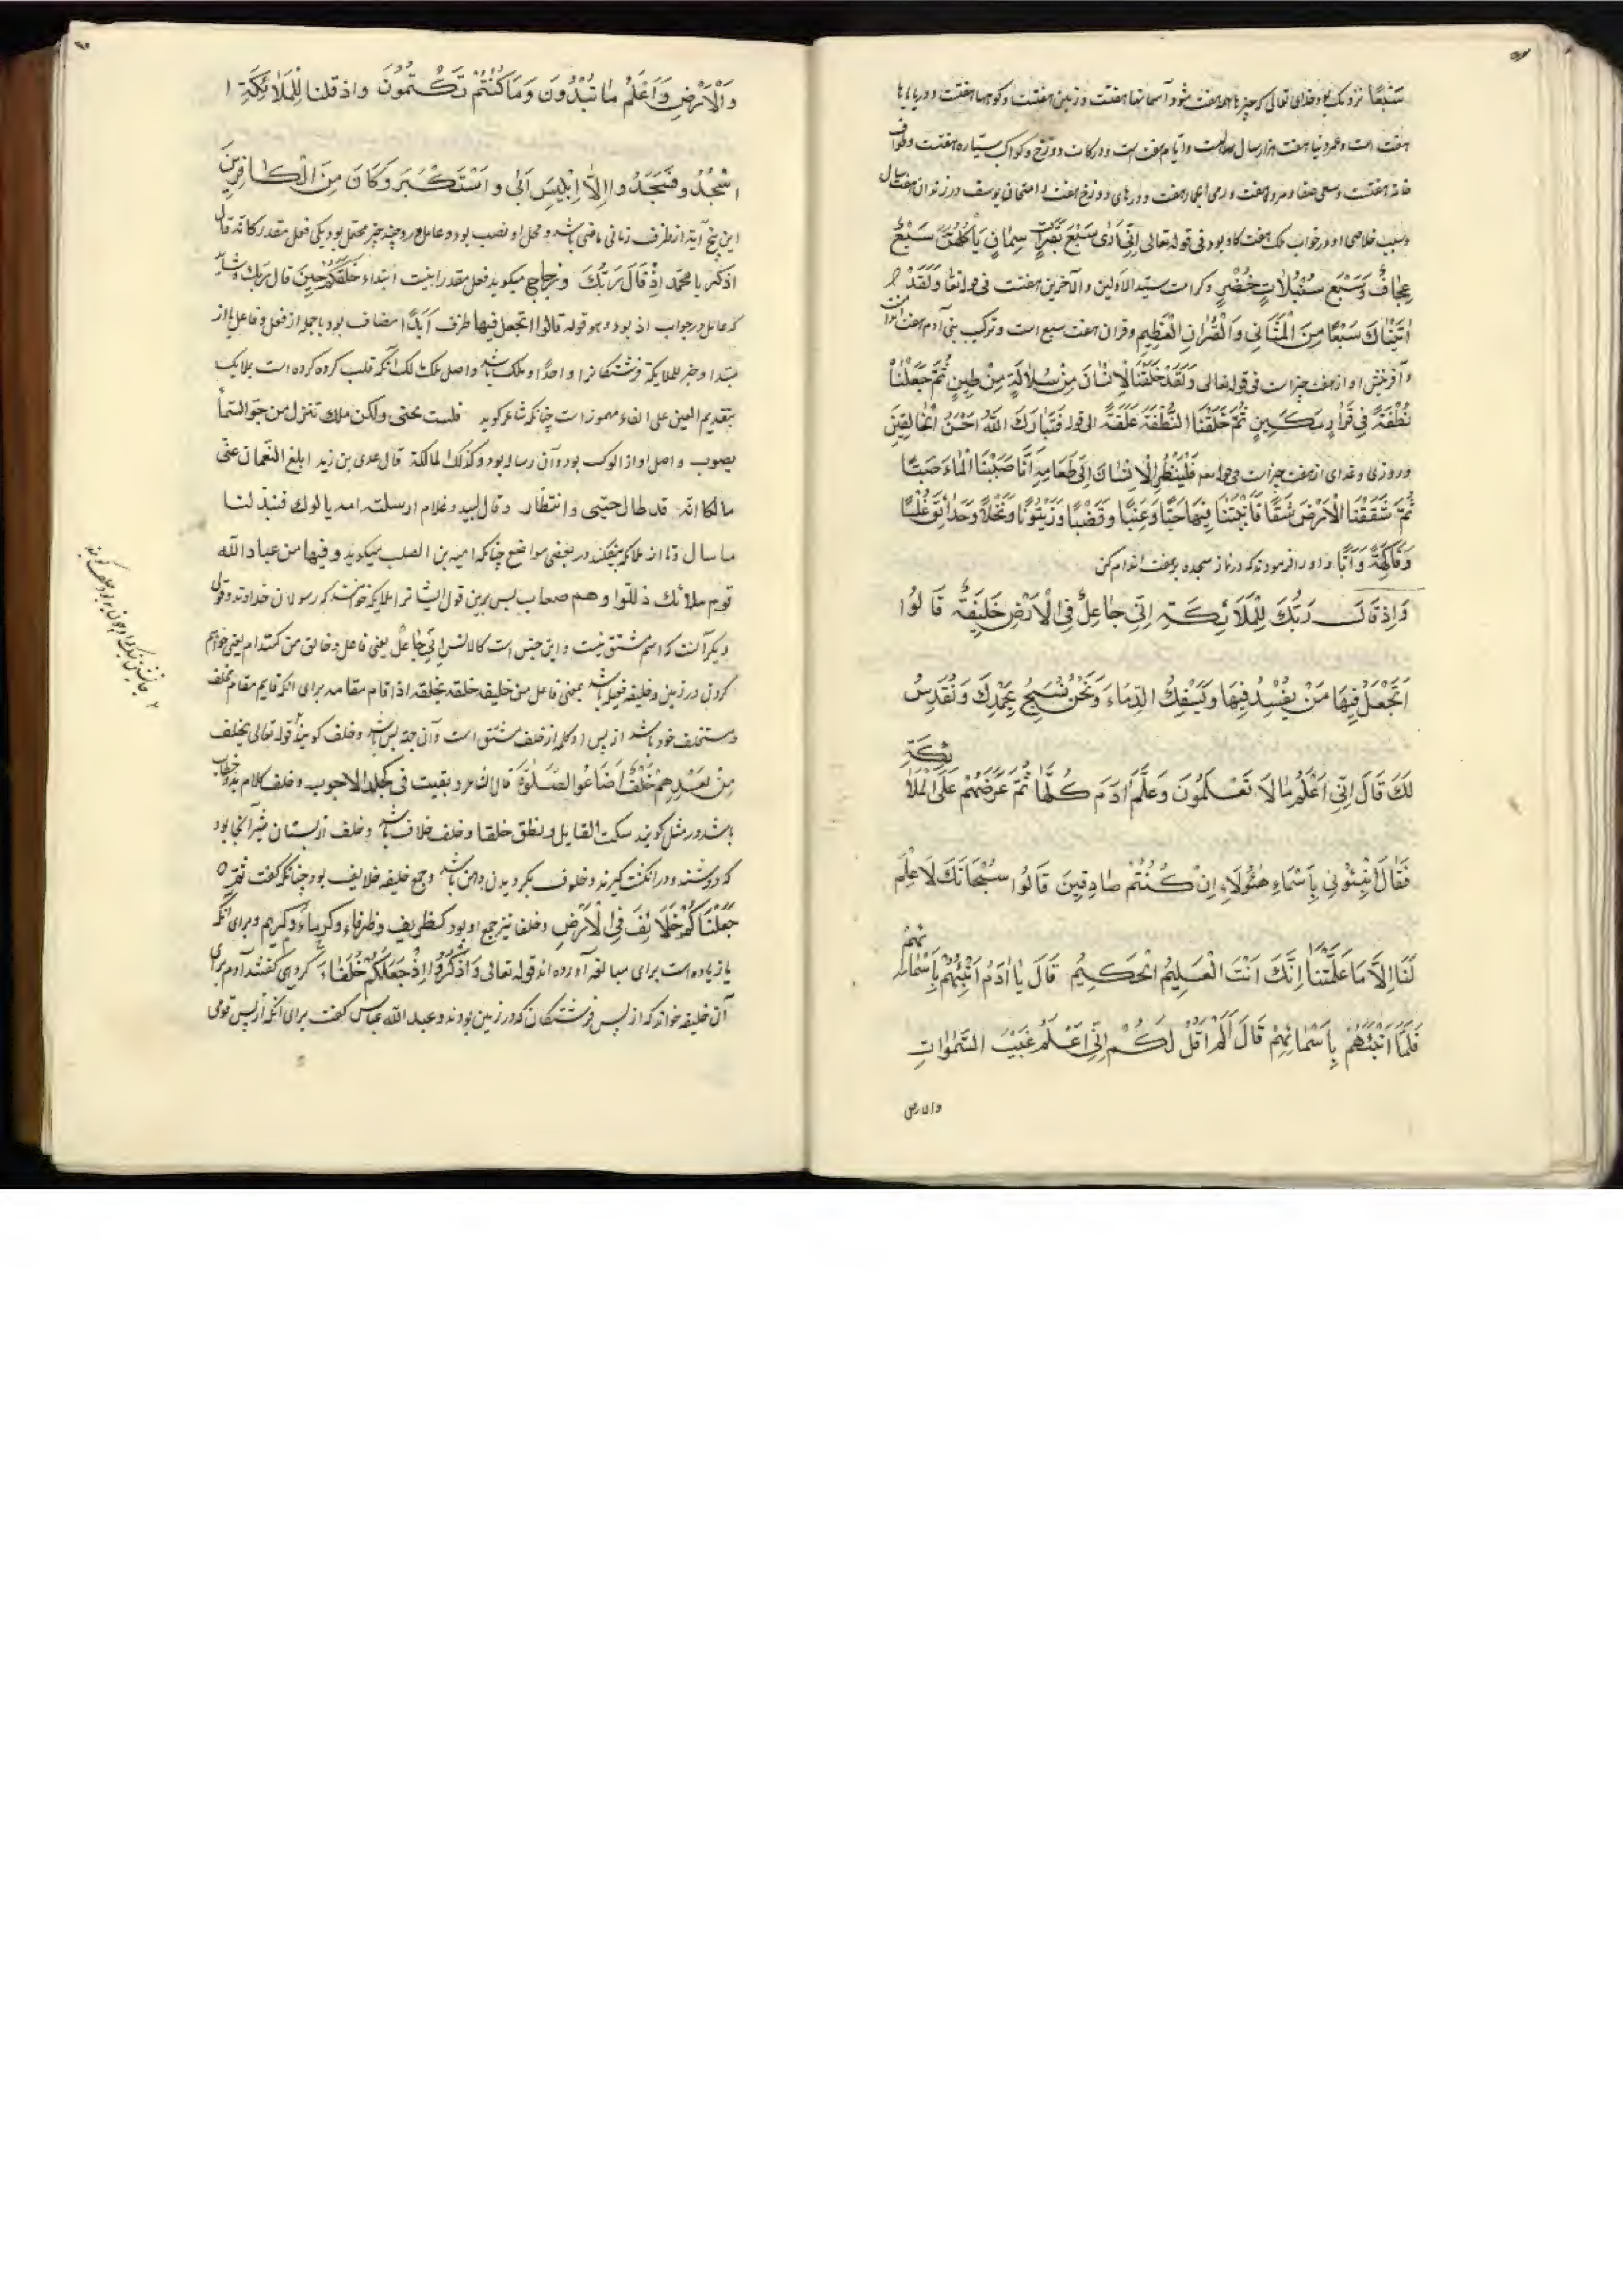 سَبْعًا نزدیک گاو خدای تعالی که چیزها هفت شود آسمانها هفتست و زمین هفتست و کوهها هفتست و دریاها
هفت است و عمر دنیا هفت هزار سال است و ایام هفت است و درکات دوزخ و کواکب سیاره هفتست و طواف
خانه هفتست و سعی صفا و مروه هفت و رمی اجمار هفت و درهای دوزخ هفت و امتحان یوسف در زندان هفت سال
و سبب خلاصی او در خواب ملک هفت گاو بود فی قوله تعالی اِنّی اَرٰی سَبْعَ بَقَرٰاتٍ سِمٰانٍ یَأْکُلُهُنَّ سَبْعٌ
عِجٰافٌ وَسَبْعَ سُنْبُلاٰتٍ خُضْرٍ و کرامت سید الاولین و الآخرین هفتست فی قوله تعالی وَلَقَدْ
اٰتَیْنٰاکَ سَبْعًا مِنَ الْمَثٰانِی وَالْقُرْاٰنَ الْعَظِیمَ و قران هفت سبع است و ترکیب بنی آدم هفت اندام است
و آفرینش او از هفت چیز است فی قوله تعالی وَلَقَدْ خَلَقْنَا الْاِنْسٰانَ مِنْ سُلاٰلَةٍ مِنْ طِینٍ ثُمَّ جَعَلْنٰاهُ
نُطْفَةً فِی قَرٰارٍ مَکِینٍ ثُمَّ خَلَقْنَا النُّطْفَةَ عَلَقَةً الی قوله فَتَبٰارَکَ اللّٰهُ اَحْسَنُ الْخٰالِقِینَ
و روزی و غذای از هفت چیز است فی قوله فَلْیَنْظُرِ الْاِنْسٰانُ اِلٰی طَعٰامِهِ اَنّٰا صَبَبْنَا الْمٰاءَ صَبًّا
ثُمَّ شَقَقْنَا الْاَرْضَ شَقًّا فَاَنْبَتْنٰا فِیهٰا حَبًّا وَعِنَبًا وَقَضْبًا وَزَیْتُونًا وَنَخْلًا وَحَدٰائِقَ غُلْبًا
وَفٰاکِهَةً وَاَبًّا و او را فرمود که در نماز سجده بر هفت اندام کن
وَاِذْ قَالَ رَبُّکَ لِلْمَلاٰئِکَةِ اِنِّی جٰاعِلٌ فِی الْاَرْضِ خَلِیفَةً قٰالُوا
اَتَجْعَلُ فِیهٰا مَنْ یُفْسِدُ فِیهٰا وَیَسْفِکُ الدِّمٰاءَ وَنَحْنُ نُسَبِّحُ بِحَمْدِکَ وَنُقَدِّسُ
لَکَ قَالَ اِنِّی اَعْلَمُ مٰا لاٰ تَعْلَمُونَ وَعَلَّمَ اٰدَمَ کُلَّهٰا ثُمَّ عَرَضَهُمْ عَلَی الْمَلاٰئِکَةِ
فَقٰالَ اَنْبِئُونِی بِاَسْمٰاءِ هٰؤُلاٰءِ اِنْ کُنْتُمْ صٰادِقِینَ قٰالُوا سُبْحٰانَکَ لاٰ عِلْمَ
لَنٰا اِلاّٰ مٰا عَلَّمْتَنٰا اِنَّکَ اَنْتَ الْعَلِیمُ الْحَکِیمُ قَالَ یٰا اٰدَمُ اَنْبِئْهُمْ بِاَسْمٰائِهِمْ
فَلَمّٰا اَنْبَئَهُمْ بِاَسْمٰائِهِمْ قَالَ اَلَمْ اَقُلْ لَکُمْ اِنِّی اَعْلَمُ غَیْبَ السَّمٰوٰاتِ
والارض
وَالْاَرْضِ وَاَعْلَمُ مٰا تُبْدُونَ وَمٰا کُنْتُمْ تَکْتُمُونَ وَاِذْ قُلْنٰا لِلْمَلاٰئِکَةِ ا
اسْجُدُو فَسَجَدُوا اِلاّٰ اِبْلِیسَ اَبٰی وَاسْتَکْبَرَ وَکَانَ مِنَ الْکٰافِرِینَ
این پنج آیة از ظرف زمانی ماضی باشد و محل او نصب بود و عامل درو چند چیز محتمل بود یکی فعل مقدر کانه قال
اذکر یا محمّد اِذْ قَالَ رَبُّکَ و زجاج میکوید فعل مقدر اینست ابتداء خَلَقَکُمْ حِینَ قَالَ رَبُّکَ و شاید
که عامل در جواب اذ بود و هو قوله قالوا اتجعل فیها ظرف مضاف بود با جمله از فعل و فاعل یا از
مبتدا و خبر للملایکة فرشتگانرا و احدا و ملک باشد و اصل ملک مالک آنکه قلب کرده کرده است بملایک
بتقدیم العین علی الفاء مهموز است چنانکه شاعر کوید فلست بجنی ولکن ملاک تنزل من جوّ السّماء
یصوب و اصل او از الوکت بود و آن رساله بود و کذلک المالکة قال عدی بن زید ابلغ النعمان عنّی
مالکا انّه قد طال حبسی و انتظار و قال لبید و غلام ارسلته امه بالوک فبذلنا
ما سال و تا از ملائکه بیفکند در بعضی مواضع چنانکه امیه بن الصلت میکوید و فیها من عباد الله
قوم ملائک ذلّلوا و هم صعاب پس برین قول ایشانرا ملایکه خوانند که رسولان خداوندند و قولی
دیکر آنست که اسم مشتق نیست و این جنس است کالانس اِنِّی جٰاعِلٌ یعنی فاعل و خالق من کننده ام یعنی خواهم
کردن در زمین و خلیفه فعیله باشد بمعنی فاعل من خلیفه خلفه یخلفه اذا قام مقامه برای انکه قایم مقام مخلف
و مستخلف خود باشد از پس او و کلمه از خلف مشتق است و آن جهة پس باشد و خلف کویند قوله تعالی فخلف
مِنْ بَعْدِهِمْ خَلْفٌ اَضٰاعُوا الصَّلٰوةَ قال الشاعر و بقیت فی خلف کجلد الاجرب و خلف کلام بد و خطا
باشد در مثل کویند سکت القایل و نطق خلفا و خلف خلاف باشد و خلف از پستان شیر آنجا بود
که دوشنده در انکشت کیرند و خلوف بکردیدن دهن باشد و جمع خلیفه خلایف بود چنانکه کفت ثُمَّ
جَعَلْنٰاکُمْ خَلاٰئِفَ فِی الْاَرْضِ و خلفا نیز جمع او بود کظریف و ظرفاء و کریم و کرماء و برای انکه
یا زیاده است برای مبالغه آورده اند قوله تعالی وَاذْکُرُوا اِذْ جَعَلَکُمْ خُلَفٰاءَ کروهی کفتند آدم برای
آن خلیفه خواند که از پس فرشتکان که در زمین بودند و عبد الله عباس کفت برای انکه از پس قومی